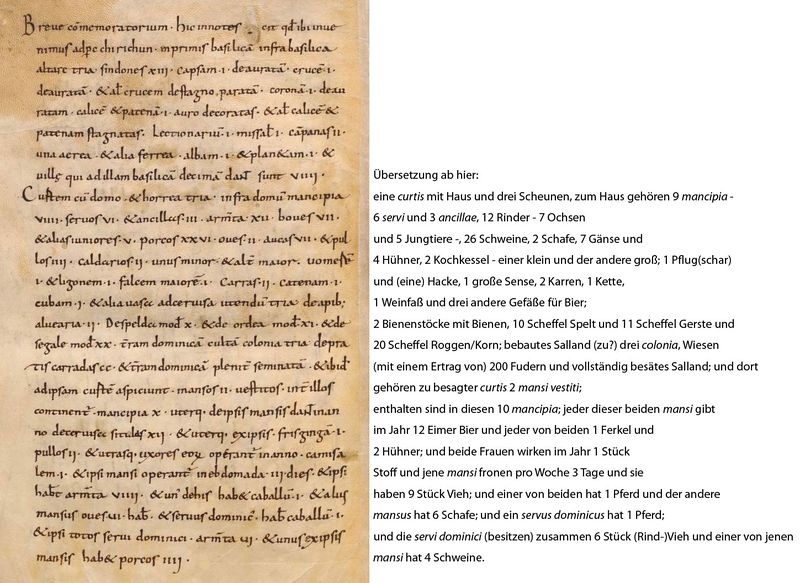 Breve cōmemoratorium · hic innotes cit qd̄ ibi inue
nimus adpc chirichun · inprimis basilicā infra basilica
altare tria sindones xiii · capsam · i · deauratā · crucē · i ·
deauratā · & al̄ crucem de stagno paratā · coronā · i · deau
ratam · calicē & patenā · i · auro decoratas · & al̄ calicē &
patenam stagnatas · Lectionariū · i · missal̄ · i · cāpanas ii ·
una aerea · & alia ferrea · albam · i · & planetam · i · &
qui ad illam basilicā decimā dan̄t sunt viiii ·
Curtem cū domo · & horrea tria · infra domū mancipia
viiii · servos vi · & ancillas iii · arm̄ta xii · boves vii ·
& alias iuniores · v · porcos xxvi · oves · ii · aucas vii · & pul
los iiii · caldarios ii · unus minor · & alt̄ maior · 
· i · & ligonem · i · falcem maiorē · i · Carras · ii · catenam · i ·
cubam · i · & alia vasa ad cervisa utendū tria · de apib;
alvearia · ii · De spelda mod̄ x · & de ordea mod̄ xi · & de
segale mod̄ xx · t̄ram dominicā cultā colonia tria · de pra
tis carradas cc · & t̄ram dominicā plenit̄ seminatā · & ibid̄
ad ipsam curtē aspiciunt · mansos · ii · vestitos · int̄ illos
continent̄ · mancipia · x · uterq; de ipsis mansis dan̄t in an
no de cervise situlas xii · & uterq; ex ipsis · frisgingā · i ·
pullos ii · & utrasq; uxores eoꝝ operant̄ in anno · camisa
lem · i · & ipsi mansi operant̄ in ebdomada · iii · dies · & ipsi
habt̄ arm̄ta viiii · & un' de his hab& caballū · i · & alius
mansus oves · vi · hab̄ · & servus dominic' hab̄ caballū · i ·
& ipsi totos servi dominici · arm̄ta vi · & unus ex ipsis
mansis hab& porcos iiii ·
Übersetzung ab hier:
eine curtis mit Haus und drei Scheunen, zum Haus gehören 9 mancipia -
6 servi und 3 ancillae, 12 Rinder - 7 Ochsen
und 5 Jungtiere -, 26 Schweine, 2 Schafe, 7 Gänse und
4 Hühner, 2 Kochkessel - einer klein und der andere groß; 1 Pflug(schar)
und (eine) Hacke, 1 große Sense, 2 Karren, 1 Kette,
1 Weinfaß und drei andere Gefäße für Bier;
2 Bienenstöcke mit Bienen, 10 Scheffel Spelt und 11 Scheffel Gerste und
20 Scheffel Roggen/Korn; bebautes Salland (zu?) drei colonia, Wiesen
(mit einem Ertrag von) 200 Fudern und vollständig besätes Salland; und dort
gehören zu besagter curtis 2 mansi vestiti;
enthalten sind in diesen 10 mancipia; jeder dieser beiden mansi gibt
im Jahr 12 Eimer Bier und jeder von beiden 1 Ferkel und
2 Hühner; und beide Frauen wirken im Jahr 1 Stück
Stoff und jene mansi fronen pro Woche 3 Tage und sie
haben 9 Stück Vieh; und einer von beiden hat 1 Pferd und der andere
mansus hat 6 Schafe; und ein servus dominicus hat 1 Pferd;
und die servi dominici (besitzen) zusammen 6 Stück (Rind-)Vieh und einer von jenen
mansi hat 4 Schweine.